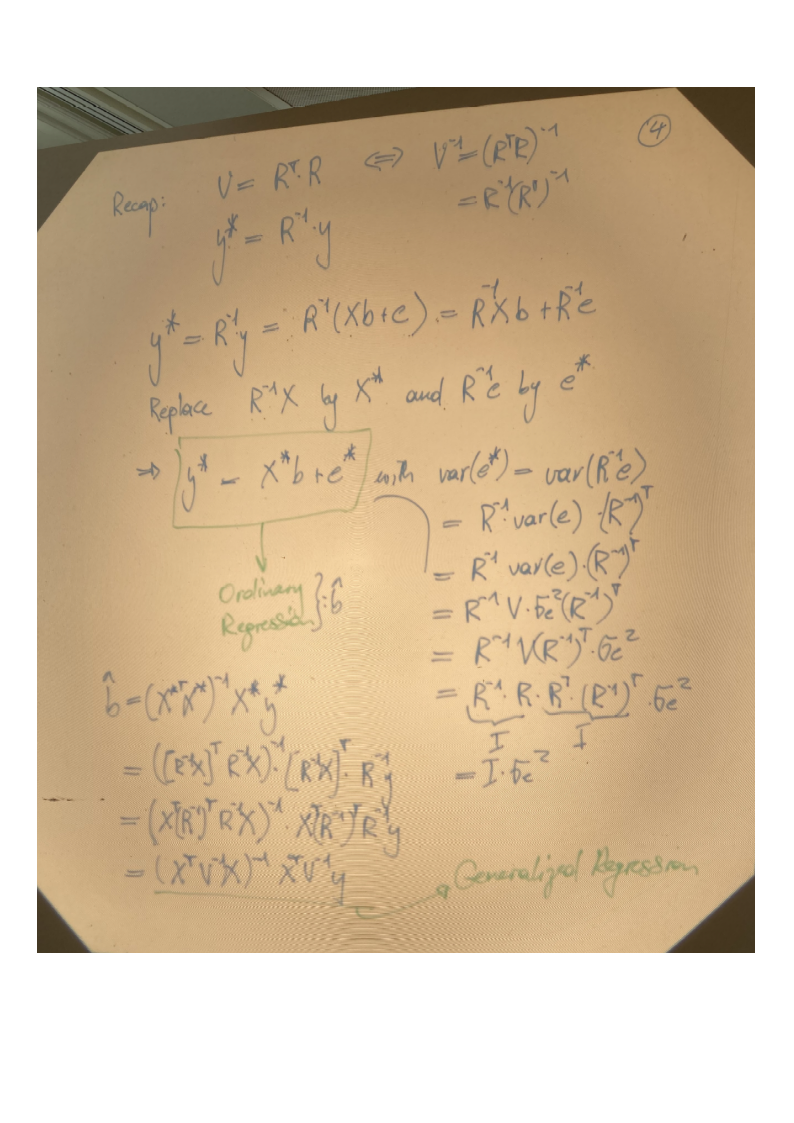 ④
Recap: V = Rᵀ·R ⇔ V⁻¹ = (RᵀR)⁻¹
= R⁻¹(Rᵀ)⁻¹
y* = R⁻¹·y
y* = R⁻¹y = R⁻¹(Xb+e) = R⁻¹Xb + R⁻¹e
Replace R⁻¹X by X* and R⁻¹e by e*
⇒ y* = X*b + e* with var(e*) = var(R⁻¹e)
= R⁻¹·var(e)·(R⁻¹)ᵀ
= R⁻¹ var(e)·(R⁻¹)ᵀ
= R⁻¹ V·σₑ²(R⁻¹)ᵀ
= R⁻¹V(R⁻¹)ᵀ·σₑ²
= R⁻¹·R·Rᵀ·(R⁻¹)ᵀ·σₑ²
I I
= I·σₑ²
Ordinary
Regression } : b̂
b̂ = (X*ᵀX*)⁻¹ X* y*
= ([R⁻¹X]ᵀ R⁻¹X)⁻¹·[R⁻¹X]ᵀ·R⁻¹y
= (Xᵀ(R⁻¹)ᵀR⁻¹X)⁻¹·Xᵀ(R⁻¹)ᵀR⁻¹y
= (XᵀV⁻¹X)⁻¹ XᵀV⁻¹y
Generalized Regression